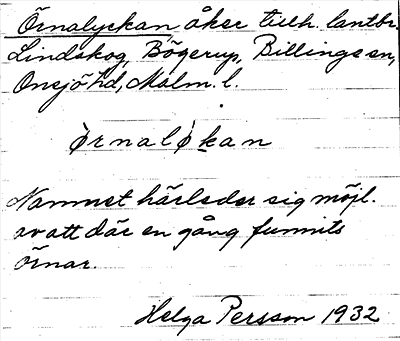 Örnalyckan åker tillh. lantbr.
Lindskog, Bögerup, Billinge sn,
Onsjö hd, Malm. l.
ørnaløkan
Namnet härleder sig möjl.
av att där en gång funnits
örnar.
Helga Persson 1932